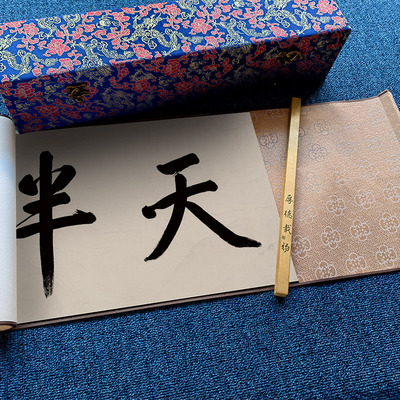 天半
厚德載物